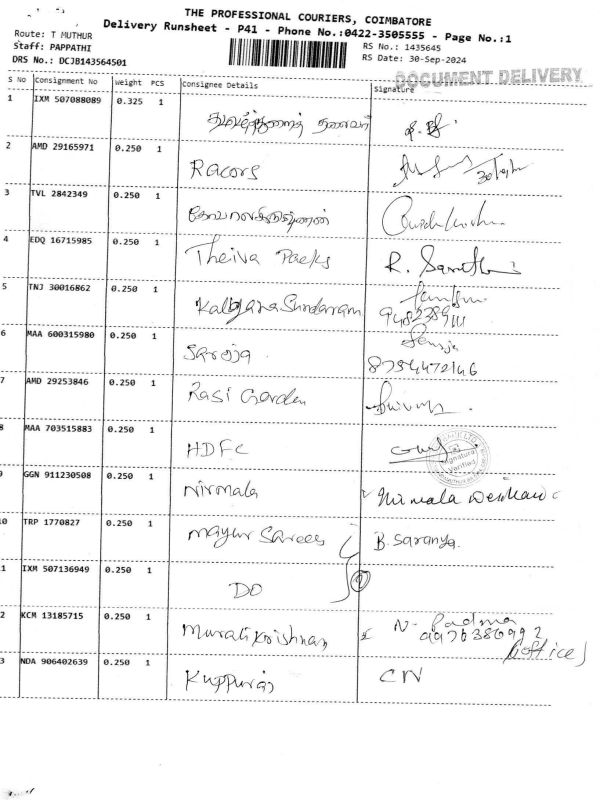 THE PROFESSIONAL COURIERS, COIMBATORE
Delivery Runsheet - P41 - Phone No.:0422-3505555 - Page No.:1
Route: T MUTHUR
Staff: PAPPATHI
DRS No.: DCJB143564501
RS No.: 1435645
RS Date: 30-Sep-2024
DOCUMENT DELIVERY
S No Consignment No Weight PCS Consignee Details Signature
1 IXM 507088089 0.325 1
2 AMD 29165971 0.250 1 Racors
3 TVL 2842349 0.250 1
4 EDQ 16715985 0.250 1 Theiva Packs R.
5 TNJ 30016862 0.250 1 Kalyana Sundaram
6 MAA 600315980 0.250 1 Saroja
8754472146
7 AMD 29253846 0.250 1 Rasi Garden
8 MAA 703515883 0.250 1 HDFC
Signature Verified
9 GGN 911230508 0.250 1 Nirmala Nirmala
10 TRP 1770827 0.250 1 Mayur Sarees B. Saranya.
11 IXM 507136949 0.250 1 DO
2 KCM 13185715 0.250 1 Murali Krishnan N. Padma
9976386992
(office)
3 NDA 906402639 0.250 1 Kuppuraj CN